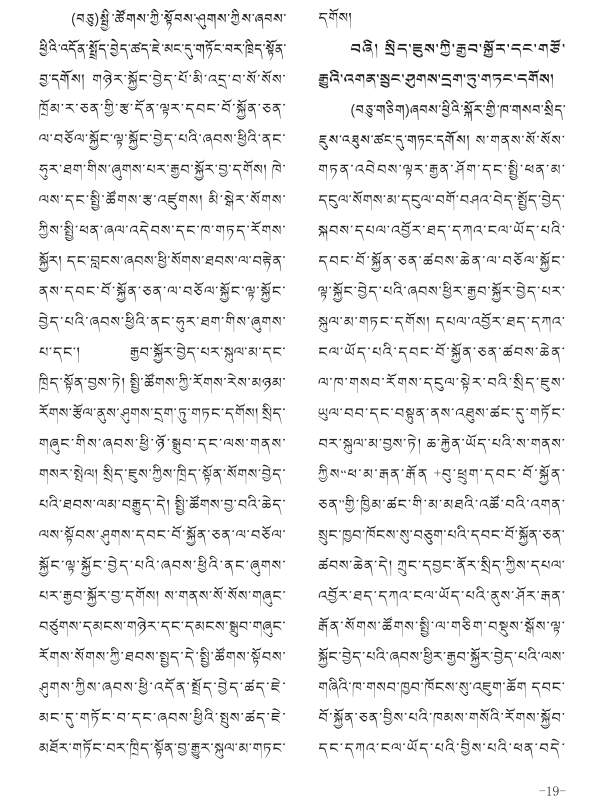 (བཅུ)སྤྱི་ཚོགས་ཀྱི་སྟོབས་ཤུགས་ཀྱིས་ཞབས་
ཕྱིའི་འདོན་སྤྲོད་བྱེད་ཚད་ཇེ་མང་དུ་གཏོང་བར་ཁྲིད་སྟོན་
བྱ་དགོས། གཉེར་སྐྱོང་བྱེད་པོ་མི་འདྲ་བ་སོ་སོས་
ཁྲོམ་ར་ཅན་གྱི་རྩ་དོན་ལྟར་དབང་པོ་སྐྱོན་ཅན་
ལ་བཅོལ་སྐྱོང་ལྟ་སྐྱོང་བྱེད་པའི་ཞབས་ཕྱིའི་ནང་
ཧུར་ཐག་གིས་ཞུགས་པར་རྒྱབ་སྐྱོར་བྱ་དགོས། ཁེ་
ལས་དང་སྤྱི་ཚོགས་རྩ་འཛུགས། མི་སྒེར་སོགས་
ཀྱིས་སྤྱི་ཕན་ཞལ་འདེབས་དང་ཁ་གཏད་རོགས་
སྐྱོར། དང་བླངས་ཞབས་ཕྱི་སོགས་ཐབས་ལ་བརྟེན་
ནས་དབང་པོ་སྐྱོན་ཅན་ལ་བཅོལ་སྐྱོང་ལྟ་སྐྱོང་
བྱེད་པའི་ཞབས་ཕྱིའི་ནང་ཧུར་ཐག་གིས་ཞུགས་
པ་དང་། རྒྱབ་སྐྱོར་བྱེད་པར་སྐུལ་མ་དང་
ཁྲིད་སྟོན་བྱས་ཏེ། སྤྱི་ཚོགས་ཀྱི་རོགས་རེས་མཉམ་
རོགས་རྩོལ་ནུས་ཤུགས་དྲག་ཏུ་གཏང་དགོས། སྲིད་
གཞུང་གིས་ཞབས་ཕྱི་ཉོ་སྒྲུབ་དང་ལས་གནས་
གསར་སྤེལ། སྲིད་ཇུས་ཀྱིས་ཁྲིད་སྟོན་སོགས་བྱེད་
པའི་ཐབས་ལམ་བརྒྱུད་དེ། སྤྱི་ཚོགས་བྱ་བའི་ཆེད་
ལས་སྟོབས་ཤུགས་དབང་པོ་སྐྱོན་ཅན་ལ་བཅོལ་
སྐྱོང་ལྟ་སྐྱོང་བྱེད་པའི་ཞབས་ཕྱིའི་ནང་ཞུགས་
པར་རྒྱབ་སྐྱོར་བྱ་དགོས། ས་གནས་སོ་སོས་གཞུང་
བཙུགས་དམངས་གཉེར་དང་དམངས་སྒྲུབ་གཞུང་
རོགས་སོགས་ཀྱི་ཐབས་སྤྱད་དེ་སྤྱི་ཚོགས་སྟོབས་
ཤུགས་ཀྱིས་ཞབས་ཕྱི་འདོན་སྤྲོད་བྱེད་ཚད་ཇེ་
མང་དུ་གཏོང་བ་དང་ཞབས་ཕྱིའི་སྤུས་ཚད་ཇེ་
མཐོར་གཏོང་བར་ཁྲིད་སྟོན་བྱ་རྒྱུར་སྐུལ་མ་གཏང་
དགོས།
བཞི། སྲིད་ཇུས་ཀྱི་རྒྱབ་སྐྱོར་དང་གཙོ་
རྒྱུའི་འགན་སྲུང་ཤུགས་དྲག་ཏུ་གཏང་དགོས།
(བཅུ་གཅིག)ཞབས་ཕྱིའི་སྐོར་གྱི་ཁ་གསབ་སྲིད་
ཇུས་འཐུས་ཚང་དུ་གཏང་དགོས། ས་གནས་སོ་སོས་
གཏན་འབེབས་ལྟར་རྒྱན་ཤོག་དང་སྤྱི་ཕན་མ་
དངུལ་སོགས་མ་དངུལ་བགོ་བཤའ་བེད་སྤྱོད་བྱེད་
སྐབས་དཔལ་འབྱོར་ཐད་དཀའ་ངལ་ཡོད་པའི་
དབང་པོ་སྐྱོན་ཅན་ཚབས་ཆེན་ལ་བཅོལ་སྐྱོང་
ལྟ་སྐྱོང་བྱེད་པའི་ཞབས་ཕྱིར་རྒྱབ་སྐྱོར་བྱེད་པར་
སྐུལ་མ་གཏང་དགོས། དཔལ་འབྱོར་ཐད་དཀའ་
ངལ་ཡོད་པའི་དབང་པོ་སྐྱོན་ཅན་ཚབས་ཆེན་
ལ་ཁ་གསབ་རོགས་དངུལ་སྟེར་བའི་སྲིད་ཇུས་
ཡུལ་བབ་དང་བསྟུན་ནས་འཐུས་ཚང་དུ་གཏོང་
བར་སྐུལ་མ་བྱས་ཏེ། ཆ་རྐྱེན་ཡོད་པའི་ས་གནས་
ཀྱིས“ཕ་མ་རྒན་རྒོན +བུ་ཕྲུག་དབང་པོ་སྐྱོན་
ཅན”གྱི་ཁྱིམ་ཚང་གི་མ་མཐའི་འཚོ་བའི་འགན་
སྲུང་ཁྱབ་ཁོངས་སུ་བཅུག་པའི་དབང་པོ་སྐྱོན་ཅན་
ཚབས་ཆེན་དེ། ཀྲུང་དབྱང་ནོར་སྲིད་ཀྱིས་དཔལ་
འབྱོར་ཐད་དཀའ་ངལ་ཡོད་པའི་ནུས་ཤོར་རྒན་
རྒོན་སོགས་ཚོགས་སྤྱི་ལ་གཅིག་བསྡུས་སྒོས་ལྟ་
སྐྱོང་བྱེད་པའི་ཞབས་ཕྱིར་རྒྱབ་སྐྱོར་བྱེད་པའི་ལས་
གཞིའི་ཁ་གསབ་ཁྱབ་ཁོངས་སུ་འཇུག་ཆོག དབང་
པོ་སྐྱོན་ཅན་བྱིས་པའི་ཁམས་གསོའི་རོགས་སྐྱོབ་
དང་དཀའ་ངལ་ཡོད་པའི་བྱིས་པའི་ཕན་བདེ་
-19-